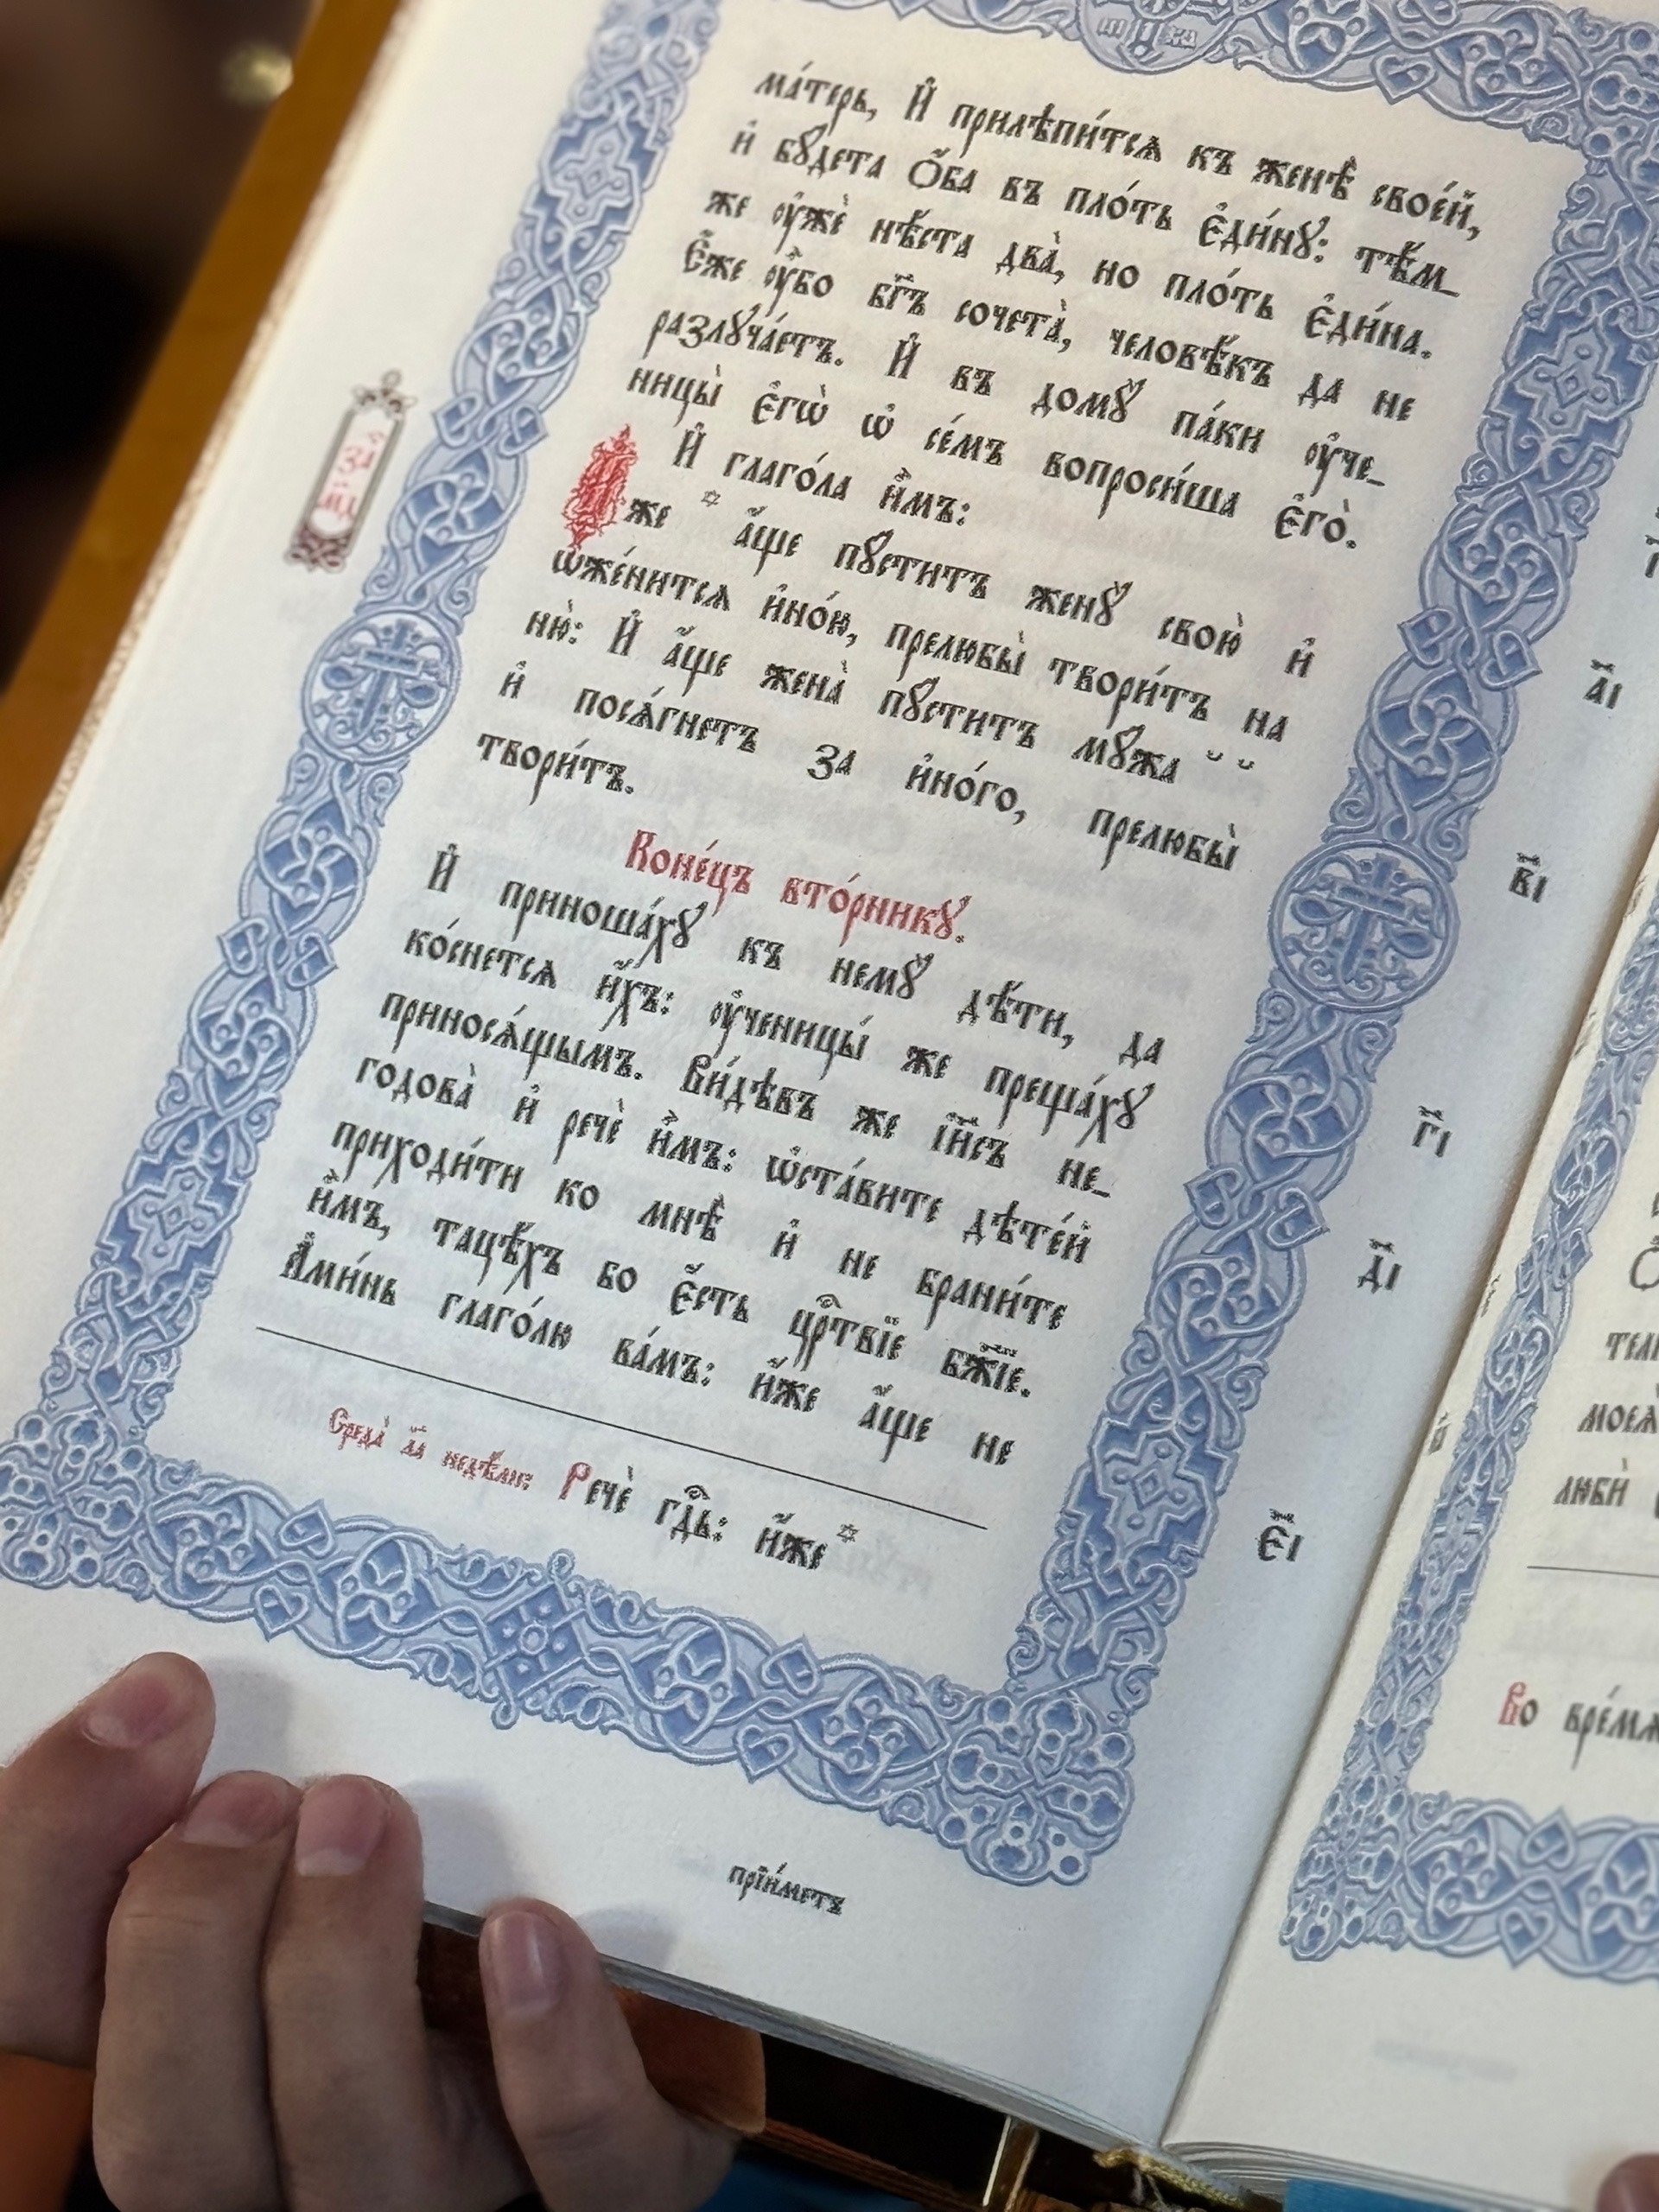 ма́терь, И҆ прилѣпи́тсѧ къ женѣ̀ свое́й,
и҆ бꙋ́дета Ѻ҆́ба въ пло́ть є҆ди́нꙋ: тѣ́м_
же ᲂу҆жѐ нѣ́ста два̀, но пло́ть є҆ди́на.
Є҆́же ᲂу҆̀бо бг҃ъ сочета̀, человѣ́къ да не
разлꙋча́етъ. И҆ въ домꙋ̀ па́ки ᲂу҆че_
ницы̀ є҆гѡ̀ ѡ҆ се́мъ вопроси́ша є҆го̀.
И҆ глаго́ла и҆̀мъ:
И҆́же * а҆́ще пꙋ́ститъ женꙋ̀ свою̀ и҆
ѡ҆же́нитсѧ и҆но́ю, прелюбы̀ твори́тъ на
ню̀: И҆ а҆́ще жена̀ пꙋ́ститъ мꙋ́жа
и҆ посѧ́гнетъ за и҆но́го, прелюбы̀
твори́тъ.
Коне́цъ вто́рникꙋ.
И҆ приноша́хꙋ къ немꙋ̀ дѣ́ти, да
ко́снетсѧ и҆́хъ: ᲂу҆ченицы́ же преща́хꙋ
приносѧ́щымъ. Ви́дѣвъ же і҆и҃съ не_
годова̀ и҆ речѐ и҆̀мъ: ѡ҆ста́вите дѣте́й
приходи́ти ко мнѣ̀ и҆ не брани́те
и҆̀мъ, тацѣ́хъ бо є҆́сть црⷭ҇твїе бж҃їе.
А҆ми́нь глаго́лю ва́мъ: и҆́же а҆́ще не
Среда̀ л҃а недѣ́ли: Речѐ гдⷭ҇ь: и҆́же *
прїи́метъ
за҄
м҃д
а҃і
в҃і
г҃і
д҃і
є҃і
тел
моеѧ̀
любѝ
Во вре́мѧ